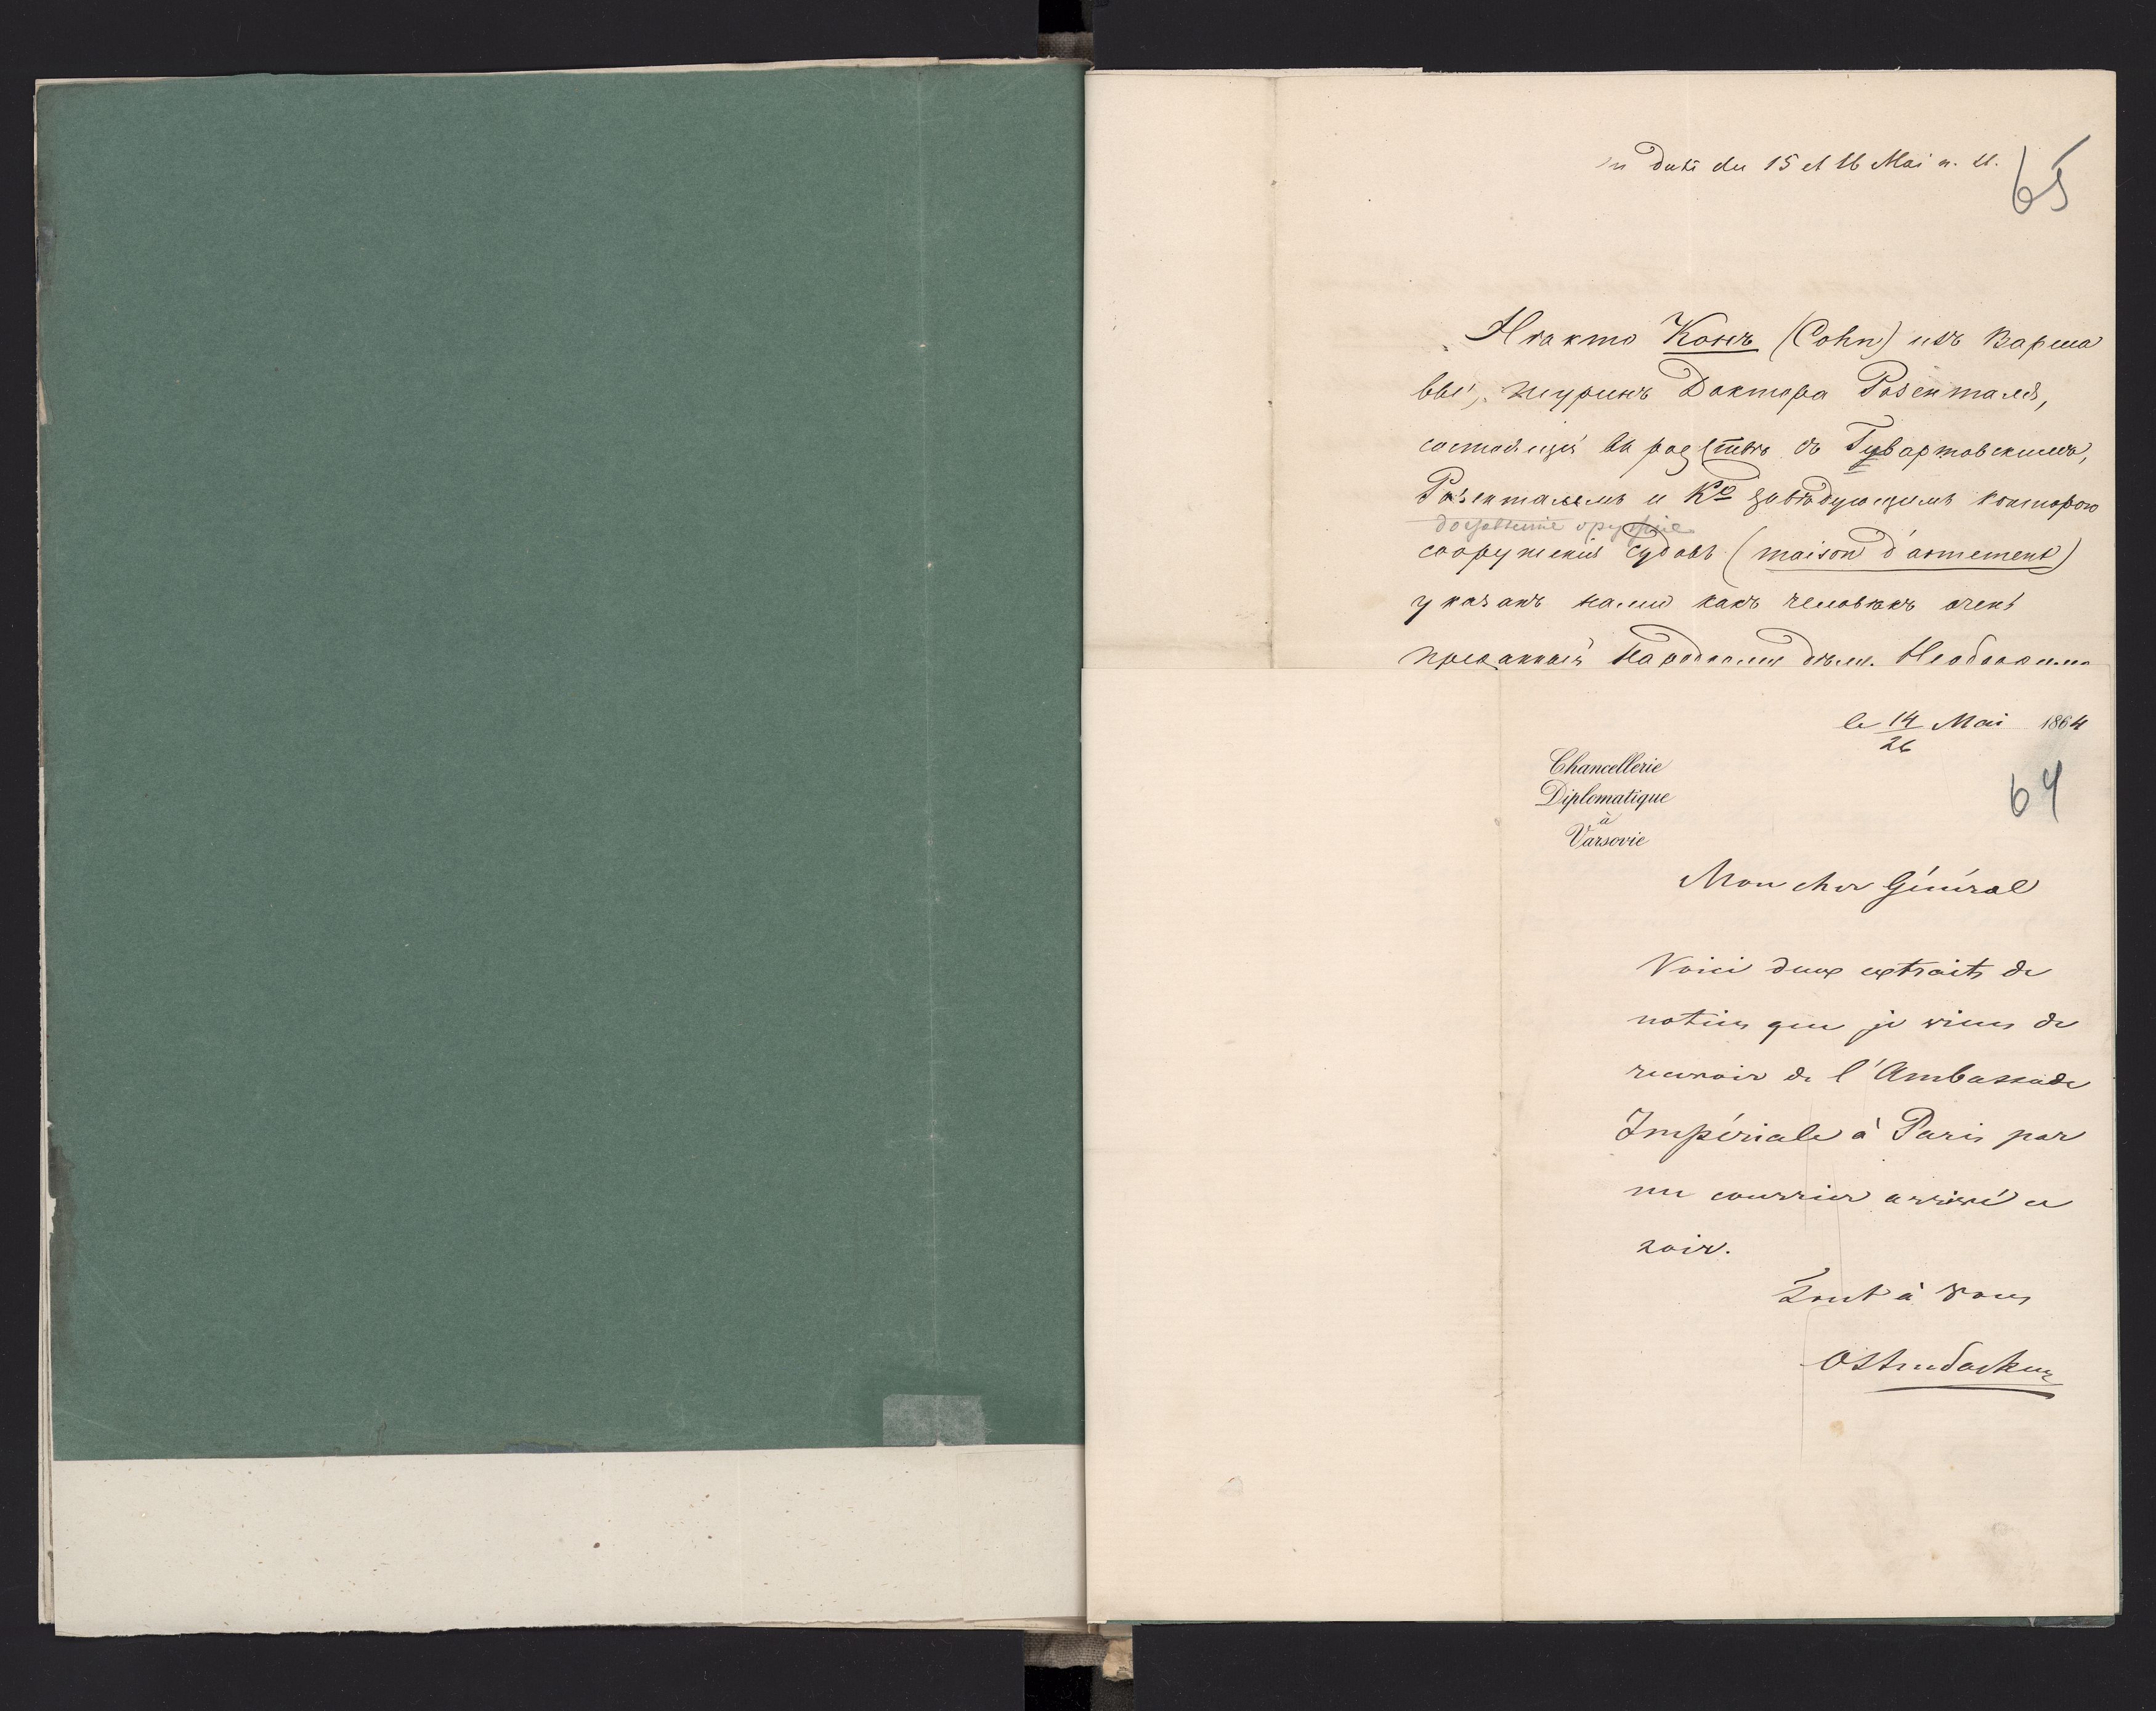 en date du 15 et 16 Mai n. st.
65
Нѣкто Конъ (Cohn) изъ Варша
вы, шуринъ Доктора Розенталя,
состоящій въ родствѣ съ Гувартовскимъ,
Розенталемъ и Кº завѣдующимъ конторою
сооруженія судовъ (maison d'armement)
указанъ намъ какъ человѣкъ очень
преданный Народному дѣлу. Необходимо
le 14/26 Mai 1864
64
Chancellerie
Diplomatique
à
Varsovie
Mon cher Général
Voici deux extraits de
notices que je viens de
recevoir de l'Ambassade
Impériale à Paris par
un courrier arrivé ce
soir.
Tout à vous
Ostensacken